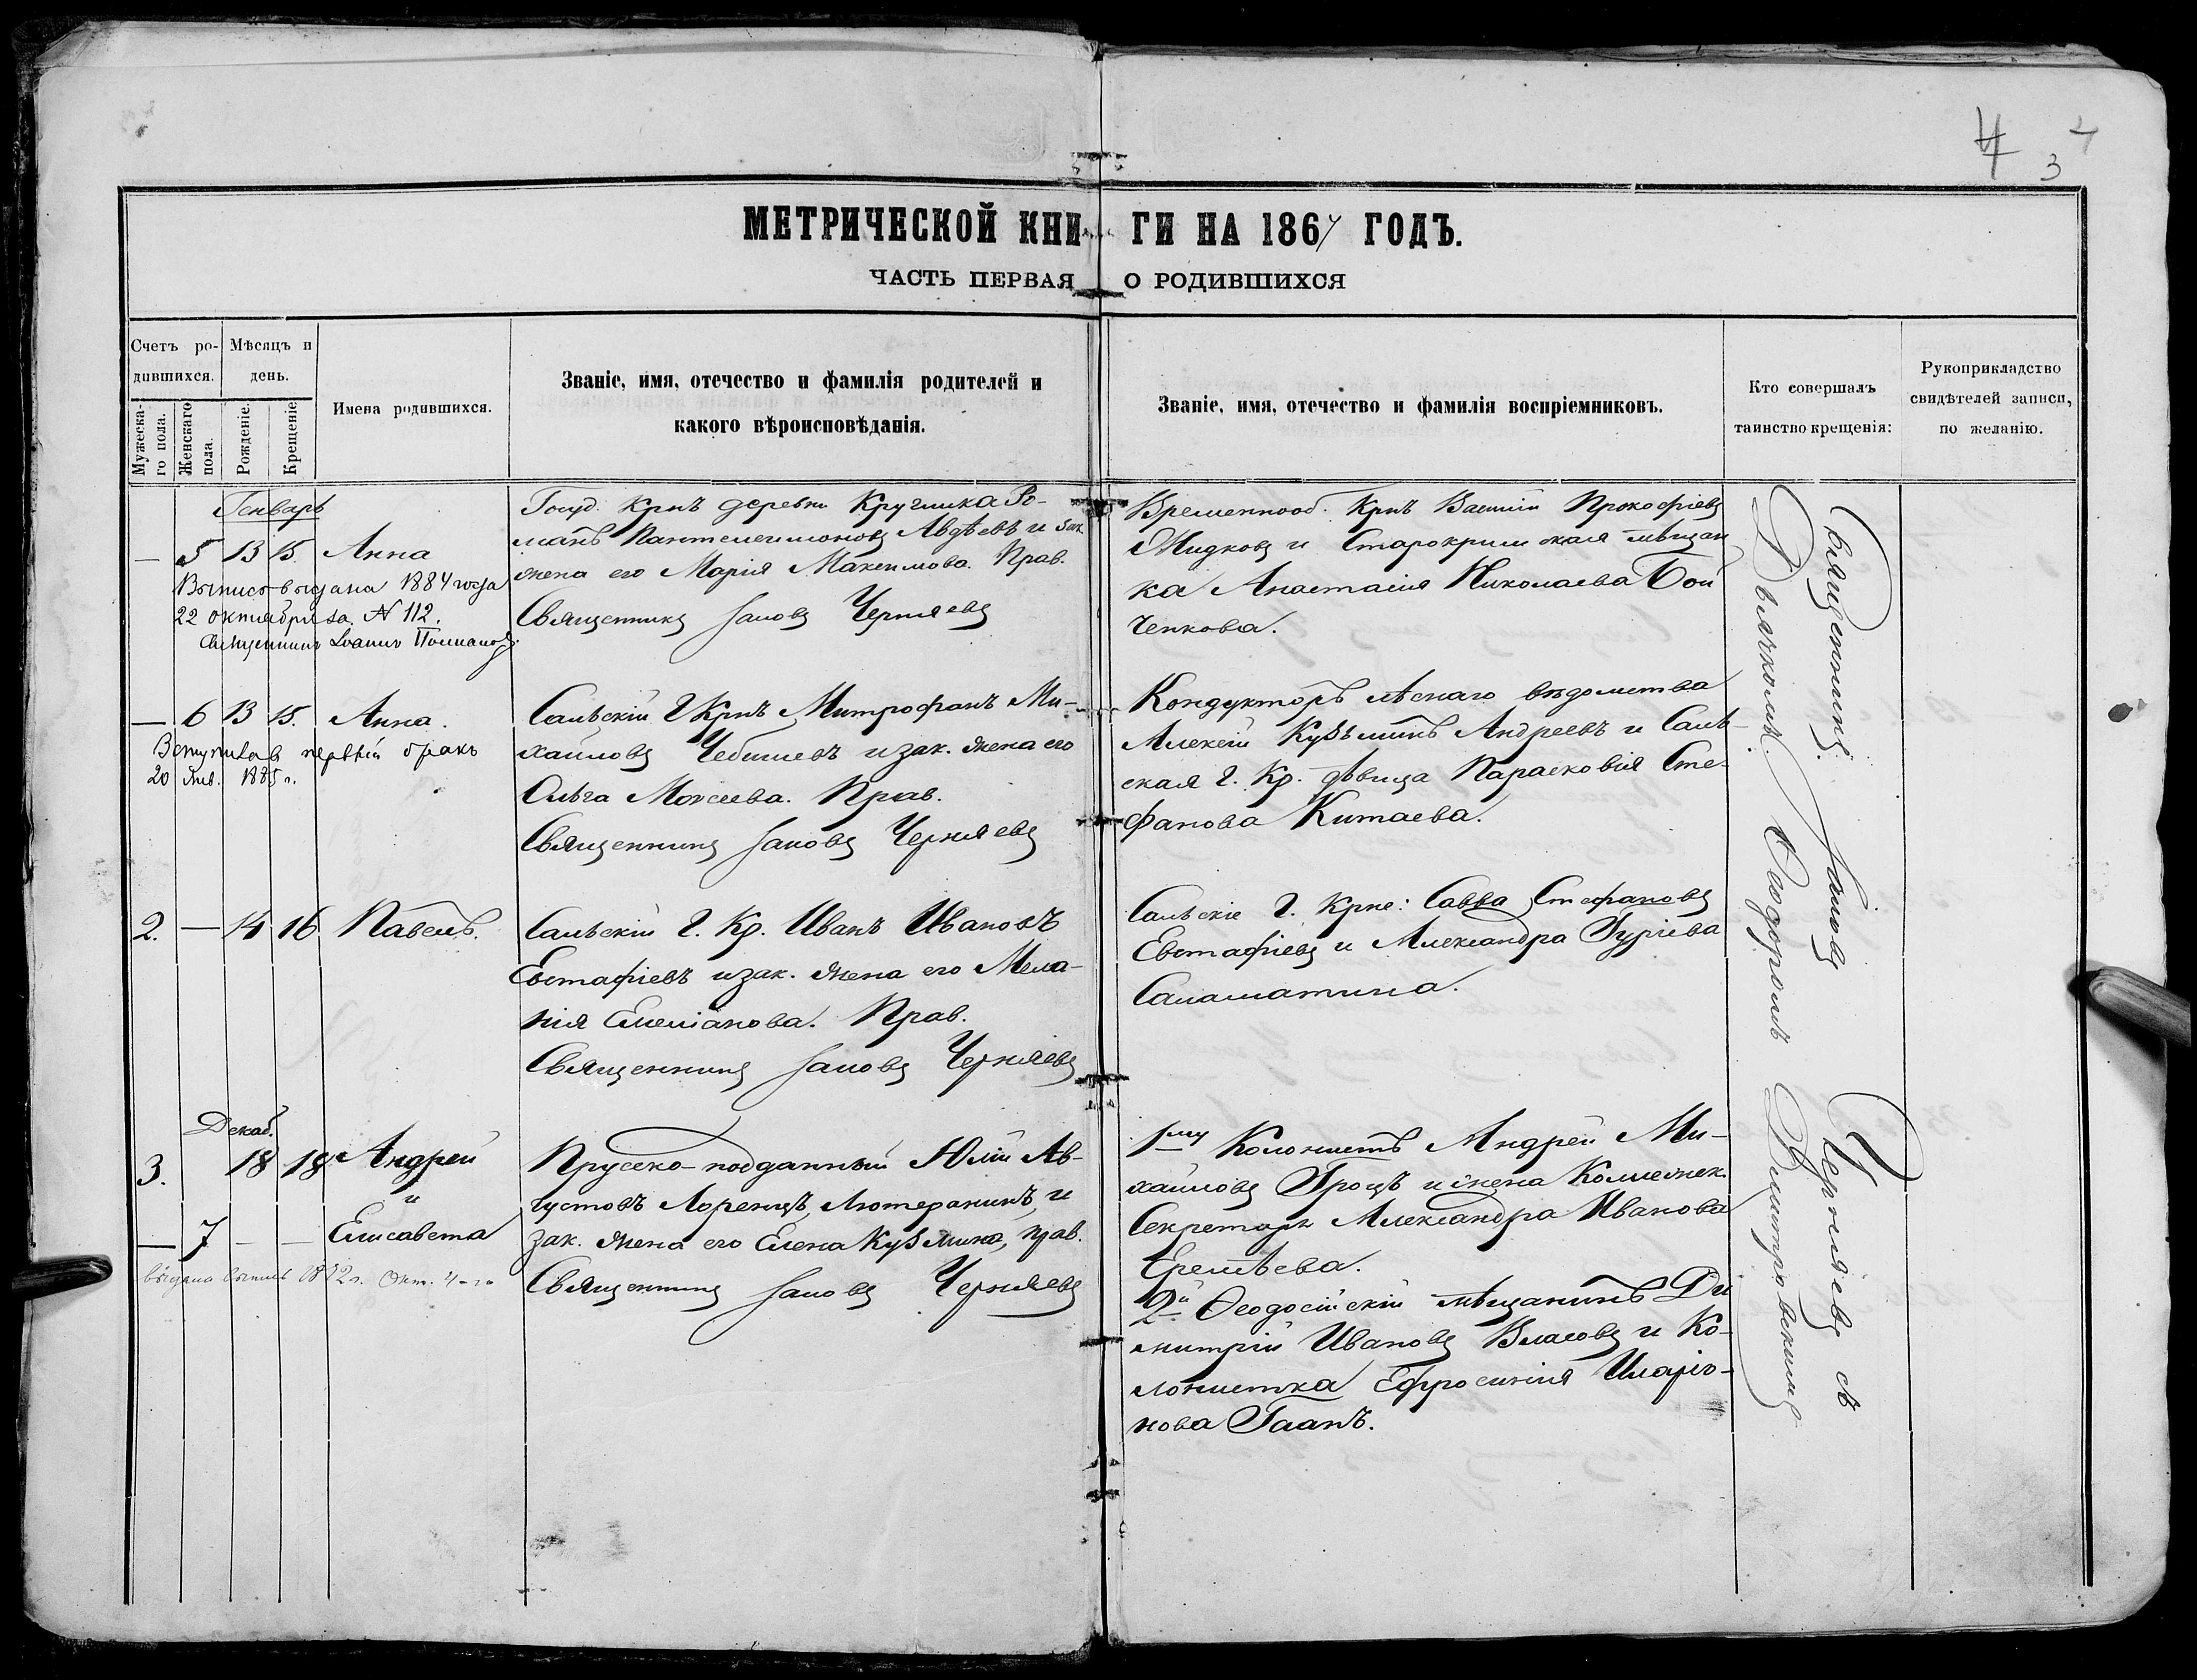 4 3
МЕТРИЧЕСКОЙ КНИГИ НА 1867 ГОДЪ.
ЧАСТЬ ПЕРВАЯ О РОДИВШИХСЯ
Счетъ родившихся.
Мужескаго пола.
Женскаго пола.
Мѣсяцъ и день.
Рожденіе.
Крещеніе.
Имена родившихся.
Званіе, имя, отечество и фамилія родителей и
какого вѣроисповѣданія.
Званіе, имя, отечество и фамилія воспріемниковъ.
Кто совершалъ
таинство крещенія:
Рукоприкладство
свидѣтелей записи,
по желанію.
Генварь
— 5 13 15. Анна
Выпись выдана 1884 года
22 октября за N 112.
Священникъ Іоаннъ
Госуд. Крнъ деревни Кручика Ро-
манъ Пантелеимоновъ Авдѣевъ и зак.
жена его Марія Максимова. Прав.
Священникъ Іаковъ Черняевъ
Временнооб. Крнъ Василій Прокофіевъ
Жидковъ и Старокрымская мѣщан
ка Анастасія Николаева Бой
ченкова.
— 6 13 15. Анна.
Вступила в первый бракъ
20 Янв. 1885 г.
Сальскій Г. Крнъ Митрофанъ Ми-
хаиловъ Чебышевъ и зак. жена его
Ольга Моисеева. Прав.
Священникъ Іаковъ Черняевъ
Кондукторъ лѣснаго вѣдомства
Алексій Кузьминъ Андреевъ и Саль-
ская Г. Кр. дѣвица Парасковія Сте-
фанова Китаева.
2. — 14 16 Павелъ.
Сальскій Г. Кр. Иванъ Ивановъ
Евстафіевъ и зак. жена его Мела-
нія Емеліанова. Прав.
Священникъ Іаковъ Черняевъ
Сальскіе Г. Крне: Савва Стефановъ
Евстафіевъ и Александра Гуріева
Саламатина.
Декаб.
3. 18 18 Андрей
и
— 7 — — Елисавета
выдана выпись Окт. 4-го
Прусско-подданный Юлій Ав-
густовъ Лоренцъ, Лютеранинъ, и
зак. жена его Елена Кузмина, прав.
Священникъ Іаковъ Черняевъ
1му Колонистъ Андрей Ми-
хаиловъ Гроцъ и жена Коллежск.
Секретаря Александра Иванова
Еремѣева.
2й Ѳеодосійскій мѣщанинъ Ди
митрій Ивановъ Власовъ и Ко-
лонистка Ефросинія Иларіо-
нова Гаанъ.
Священникъ Іаковъ Черняевъ съ
Дьячкомъ Ѳеодоромъ Димитровскимъ